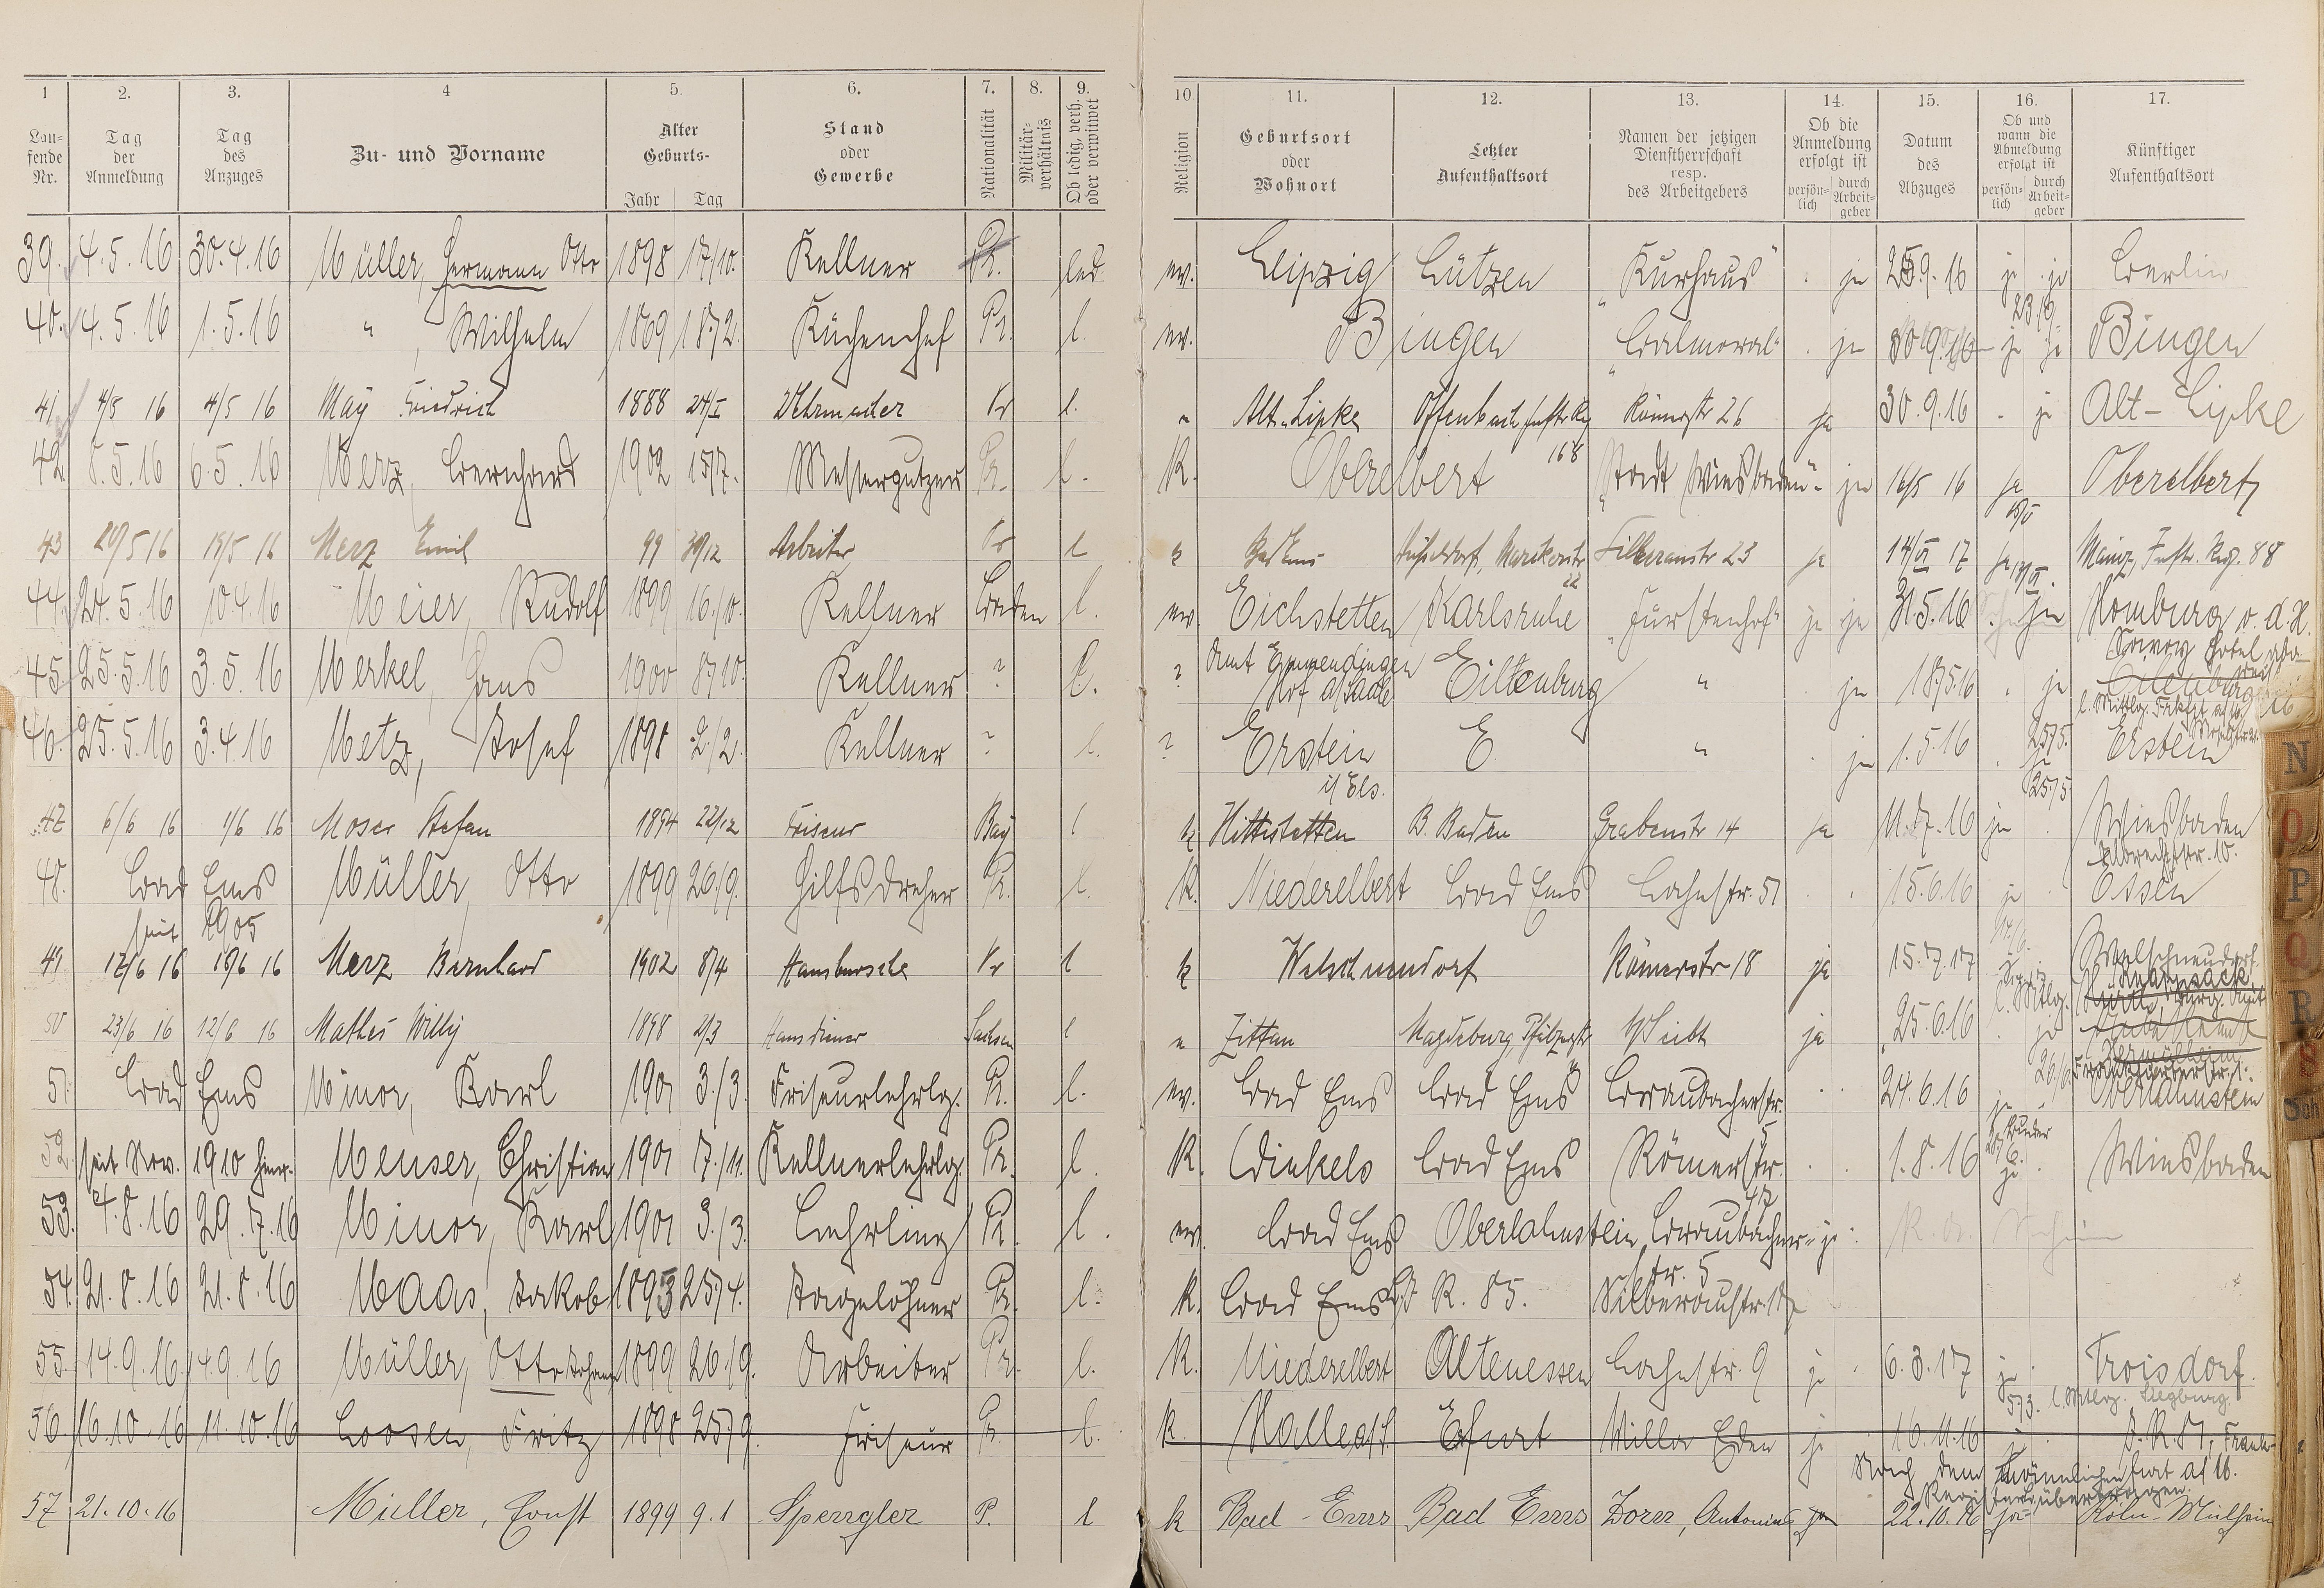 1 2. 3. 4 5. 6. 7. 8. 9. 10 11. 12. 13. 14. 15. 16. 17.
Laufende Nr. Tag der Anmeldung Tag des Anzuges Zu- und Vorname Alter Geburts- Jahr Tag Stand oder Gewerbe Nationalität Militärverhältnis Ob ledig, verh. oder verwitwet Religion Geburtsort oder Wohnort Letzter Aufenthaltsort Namen der jetzigen Dienstherrschaft resp. des Arbeitgebers Ob die Anmeldung erfolgt ist persönlich durch Arbeitgeber Datum des Abzuges Ob und wann die Abmeldung erfolgt ist persönlich durch Arbeitgeber Künftiger Aufenthaltsort
39. 4.5.16 30.4.16 Müller, Hermann Otto 1898 17/10. Kellner Pr. led. ev. Leipzig Lützen "Kurhaus" ja 25.9.16 ja ja Berlin
23/9.
40. 4.5.16 1.5.16 " , Wilhelm 1869 18/2. Küchenchef Pr. l. ev. Bingen "Balmoral" ja 30.9.16 ja ja Bingen
41 4/5 16 4/5 16 May Friedrich 1888 24/I Uhrmacher Pr l. e Alt-Lipke Offenbach Inftr Rg 168 Römerstr 26 ja 30.9.16 - ja Alt-Lipke
42 8.5.16 6.5.16 Merz, Bernhard 1902 15/7. Messerputzer Pr. l. K. Oberelbert "Stadt Wiesbaden" ja 16/5 16 ja Oberelbert
43 20/5 16 19/5 16 Merz Emil 99 30/12 Arbeiter Pr l k Bad Ems Düsseldorf, 22 Silberaustr 23 ja 14/VI 17 ja Mainz, Inftr. Reg. 88
44. 24.5.16 10.4.16 Meier, Rudolf 1899 16./10. Kellner Baden l. ev. Eichstetten Karlsruhe "Fürstenhof" ja ja 31.5.16 ja Homburg v. d. H.
Amt Emmendingen Savoy Hotel
45. 25.5.16 3.5.16 Merkel, Hans 1900 8/10. Kellner ? l. ? Hof a/Saale Eilenburg " ja 18/5.16 . ja Eilenburg
46. 25.5.16 3.4.16 Metz, Josef 1898 2./2. Kellner ? l. ? Erstein E. " ja 1.5.16 25/5. ja Erstein
i/ Els. 25/5.
47 6/6 16 1/6 16 Moser Stefan 1894 22/12 Friseur Bay l k Hittistetten B. Baden Grabenstr 14 ja 11.7.16 ja Wiesbaden
Albrechtstr. 10.
48. Bad Ems Müller, Otto 1899 26/9. Hilfsdreher Pr. l. K. Niederelbert Bad Ems Lahnstr. 51 15.6.16 ja Essen
seit 1905
49 17/6 16 16/6 16 Merz Bernhard 1902 8/4 Hausbursche Pr l k Welschneudorf Römerstr 18 ja 15.7.17 Welschneudorf
Knapsack
50 23/6 16 12/6 16 Mathes Willy 1898 2/3 Hausdiener Sachsen l e Zittau Magdeburg, Pfälzerstr ja 25.6.16 ja
26/6. Frankfurterstr. 1.
51. Bad Ems Minor, Karl 1901 3./3. Friseurlehrlg. Pr. l. ev. Bad Ems Bad Ems Braubacherstr. 5 24.6.16 ja Oberlahnstein
52. seit Nov. 1910 hier. Meuser, Christian 1901 7./11. Kellnerlehrlg. Pr. l. K. Winkels Bad Ems Römerstr. 47 1.8.16 ja Wiesbaden
53. 4.8.16 29.7.16 Minor, Karl 1901 3./3. Lehrling Pr. l. ev. Bad Ems Oberlahnstein Braubacher- ja
str. 5
54. 21.8.16 21.8.16 Maas, Jakob 1893 25/4. Tagelöhner Pr. l. k. Bad Ems R. 85. Silberaustr. 17
55. 14.9.16 14.9.16 Müller, Otto Johann 1899 26/9. Arbeiter Pr. l. K. Niederelbert Altenessen Lahnstr. 9 ja 6.3.17 ja Troisdorf.
5/3. l. Mitlg. Siegburg.
56. 16.10.16 11.10.16 Loosen, Fritz 1898 25/9. Friseur Pr. l. k. Halle a/S. Erfurt Willa Eden ja 16.11.16 J.R. 81, Frank-
Nach dem männlichen furt a/ M.
Register übertragen.
57 21.10.16 Müller, Ernst 1899 9.1 Spengler P. l k Bad-Ems Bad Ems Zorn, Antonius ja 22.10.16 ja Köln-Mülheim
N
O
P
Q
R
S
Sch